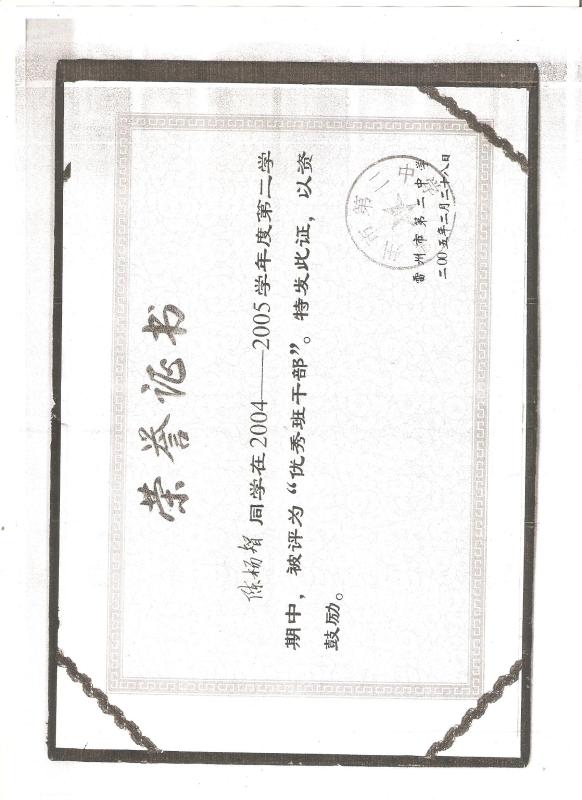 荣誉证书
陈杨智 同学在2004——2005学年度第二学
期中，被评为“优秀班干部”。特发此证，以资
鼓励。
雷州市第二中学
二00五年二月二十八日
州市第二中学